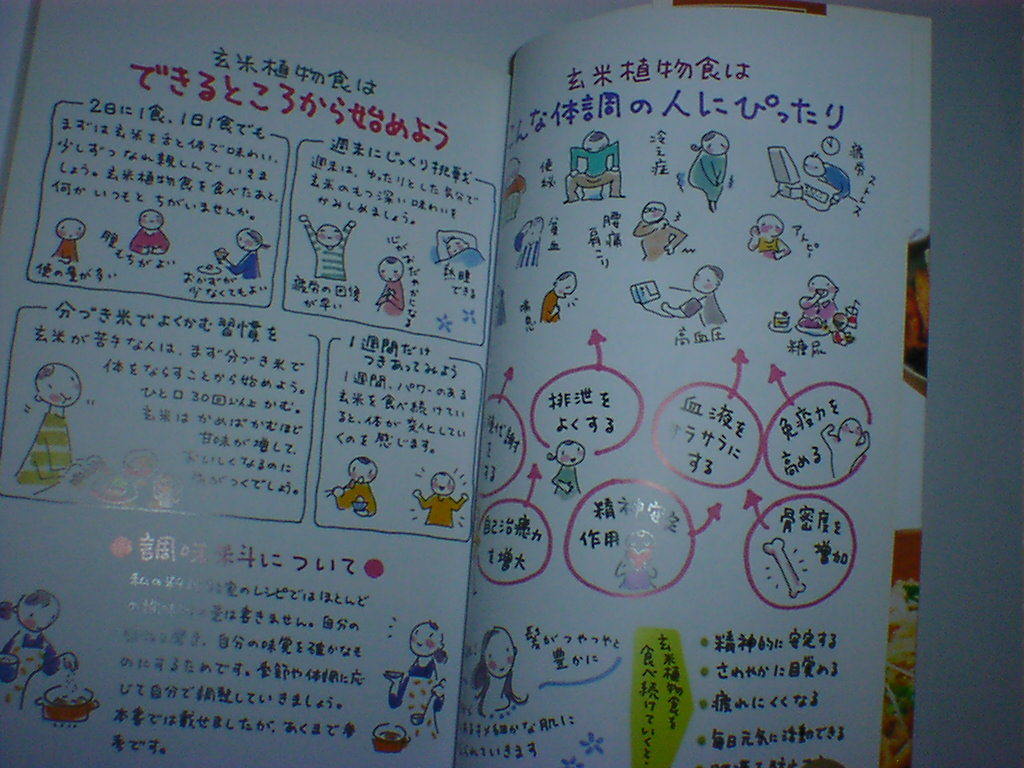 玄米植物食は
できるところから始めよう
2日に1食、1日1食でも
まずは玄米を舌と体で味わい、
少しずつなれ親しんでいきま
しょう。玄米植物食を食べたあと、
何かいつもとちがいませんか。
便の量が多い
腹もちがよい
おかずが
少なくてもよい
週末にじっくり挑戦
週末は、ゆったりとした気分で
玄米のもつ深い味わいを
かみしめましょう。
疲労の回復
が早い
心がおだやかになる
熟睡
できる
分づき米でよくかむ習慣を
玄米が苦手な人は、まず分づき米で
体をならすことから始めよう。
ひと口30回以上かむ。
玄米はかめばかむほど
甘味が増して、
おいしくなるのに
がつくでしょう。
1週間だけ
つきあってみよう
1週間、パワーのある
玄米を食べ続けてい
ると、体が変化してい
くのを感じます。
調味料について
のレシピではほとんど
は書きません。自分の
自分の味覚を確かなも
のにするためです。季節や体調に応
じて自分で調整していきましょう。
本書では載せましたが、あくまで参
考です。
玄米植物食は
んな体調の人にぴったり
便秘
冷え症
疲労
ストレス
貧血
腰痛
肩こり
アトピー
喘息
高血圧
糖尿
排泄を
よくする
血液を
サラサラに
する
免疫力を
高める
代謝
する
自己治癒力
を増大
精神安定
作用
骨密度を
増加
髪がつやつやと
豊かに
メ細かな肌に
れていきます
玄米植物食を
食べ続けていくと・
精神的に安定する
さわやかに目覚める
疲れにくくなる
毎日元気に活動できる